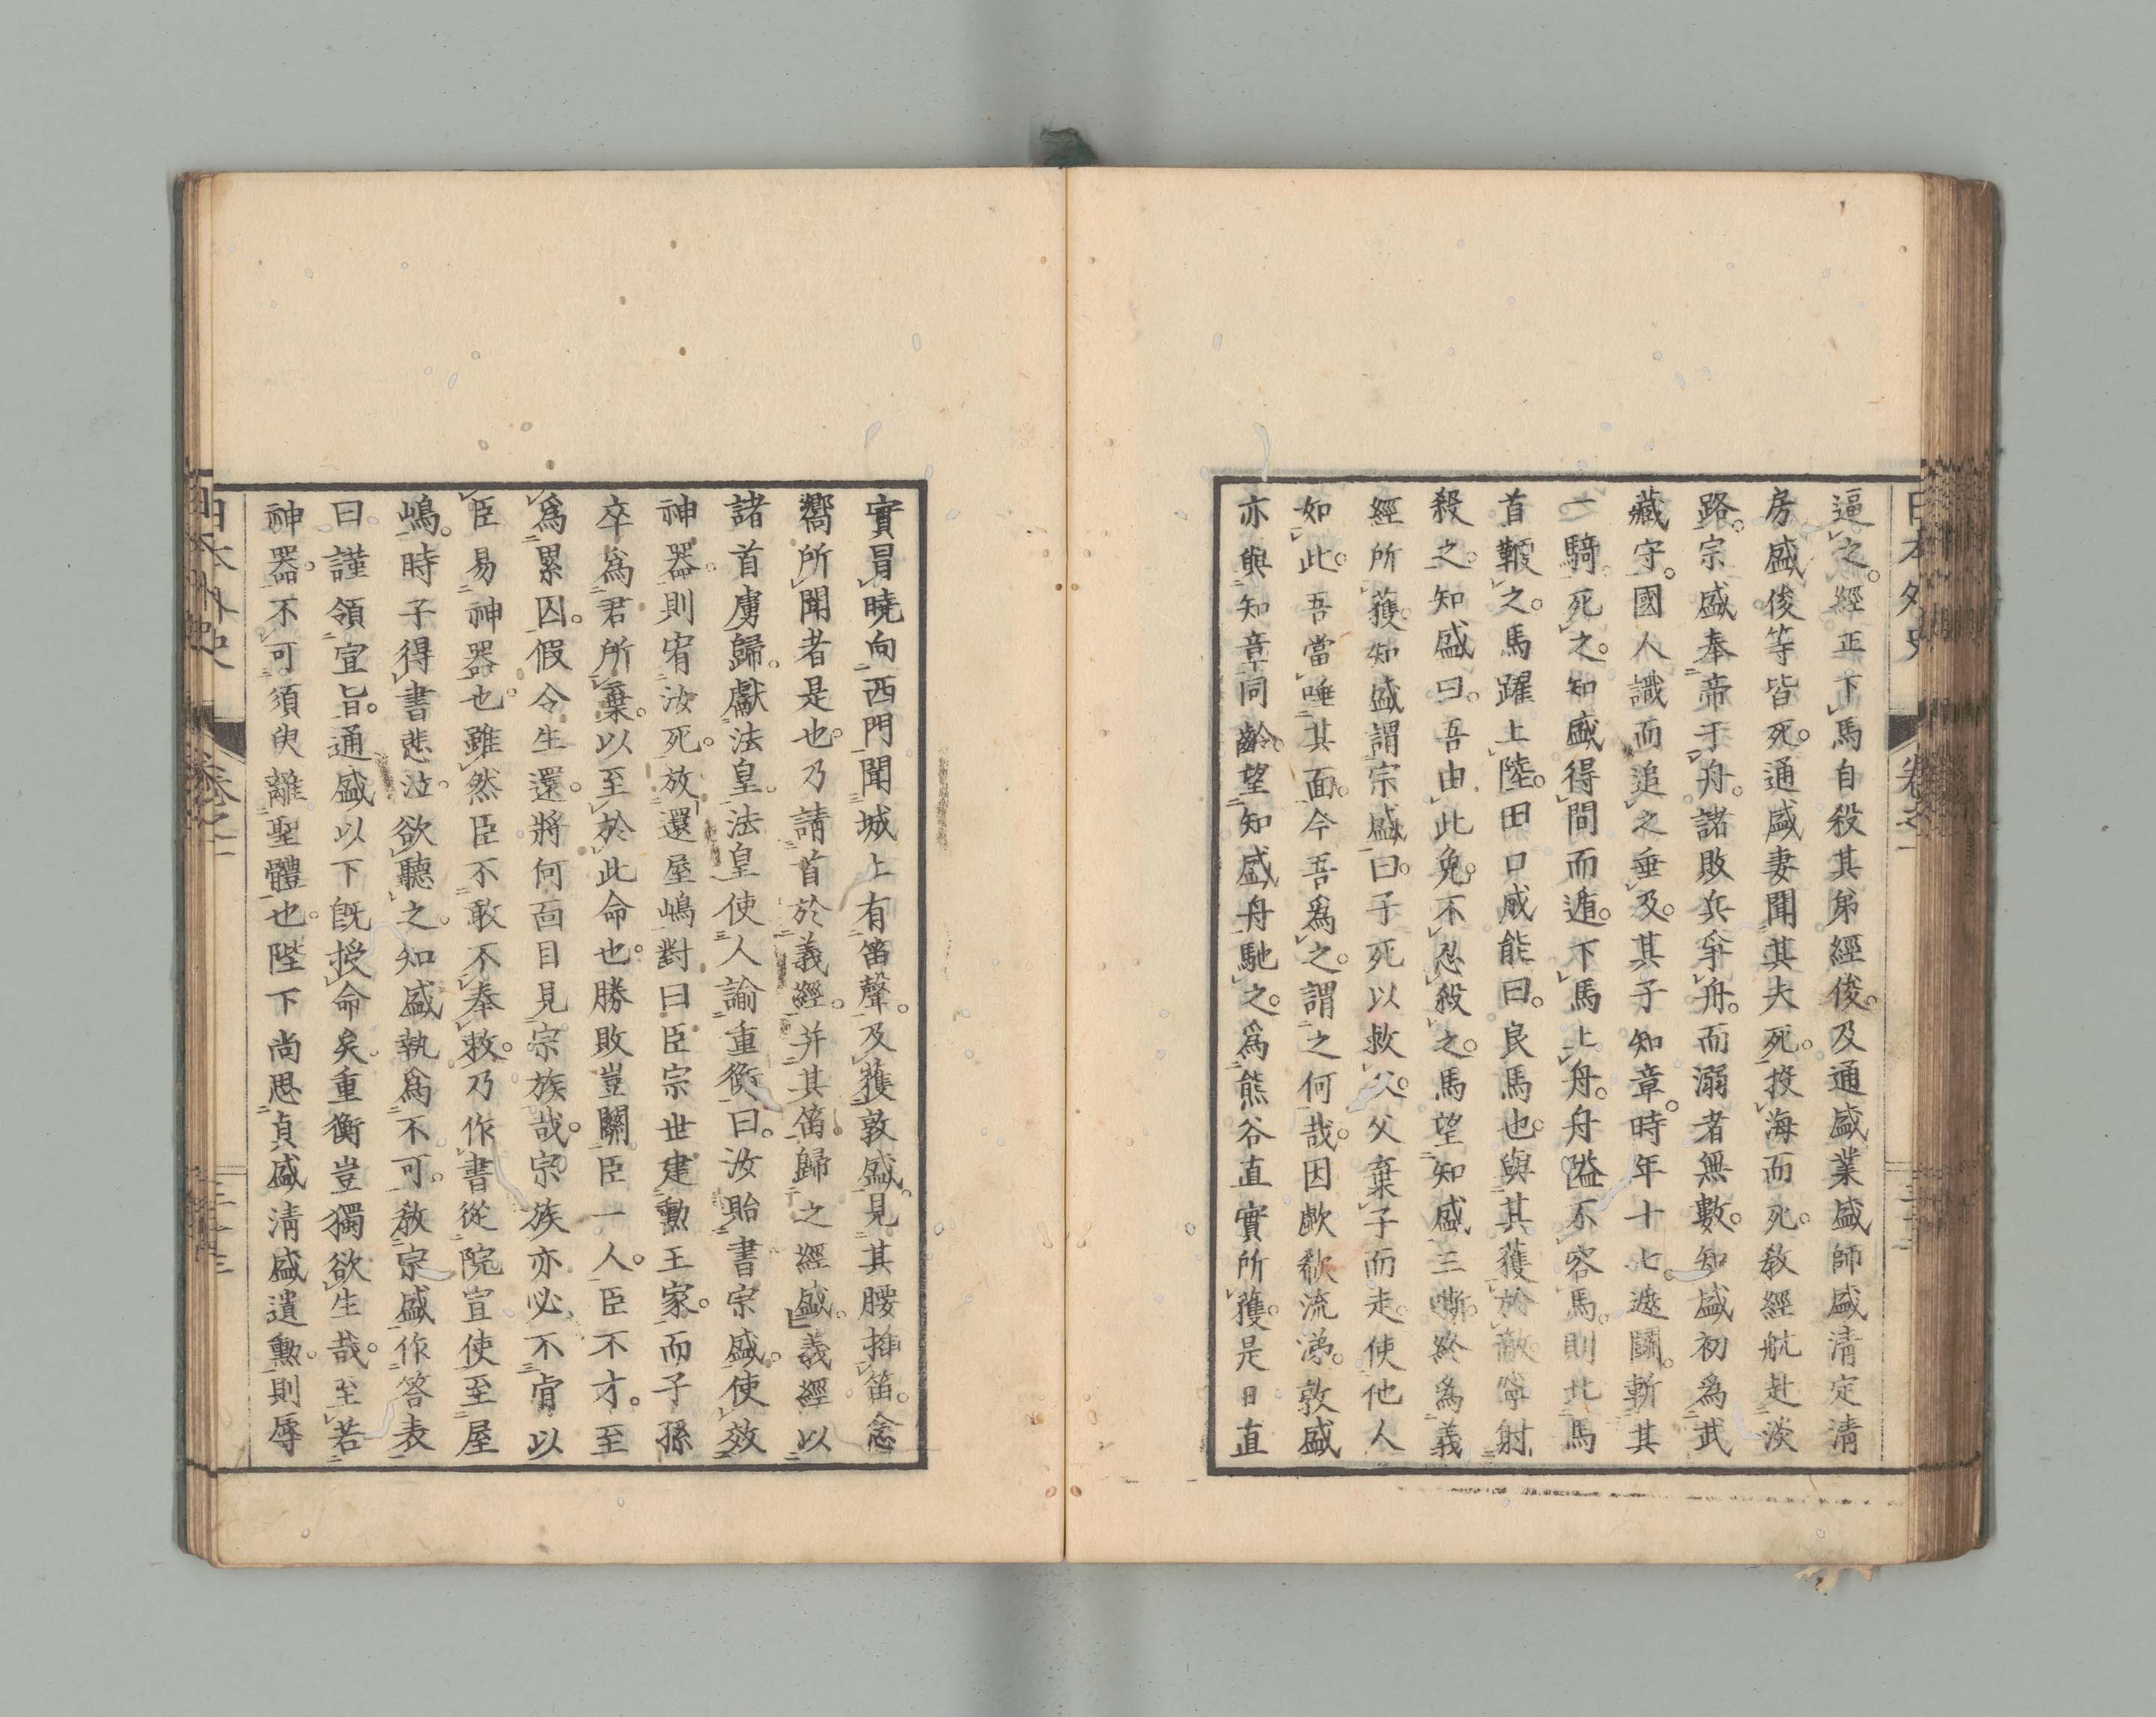 逼之。經正下馬自殺其弟經俊。及通盛業盛師盛淸定淸
房盛俊等皆死。通盛妻聞其夫死。投海而死。敎經航赴淡
路。宗盛奉帝于舟。諸敗兵爭舟。而溺者無數。知盛初爲武
藏守。國人識而追之垂及。其子知章。時年十七。遮鬪。斬其
一騎。死之。知盛得間而遁。下馬上舟。舟隘不容馬。則北馬
首鞭之。馬躍上陸。田口成能曰。良馬也。與其獲於敵寧射
殺之。知盛曰。吾由此免。不忍殺之。馬望知盛三嘶。終爲義
經所獲。知盛謂宗盛曰。子死以救父。父棄子而走。使他人
如此。吾當唾其面。今吾爲之。謂之何哉。因歔欷流涕。敦盛
亦與知章同齡。望知盛舟馳之。爲熊谷直實所獲。是日直
實冒曉向西門聞城上有笛聲。及獲敦盛。見其腰插笛。念
嚮所聞者是也。乃請首於義經。并其笛歸之經盛。義經以
諸首虜歸。獻法皇。法皇使人諭重衡曰。汝貽書宗盛。使效
神器。則宥汝死。放還屋嶋對曰臣宗世建勳王家。而子孫
卒爲君所棄。以至於此命也。勝敗豈關臣一人。臣不才。至
爲累囚。假令生還。將何面目見宗族哉。宗族亦必不肯以
臣易神器也。雖然臣不敢不奉敕。乃作書從院宣使至屋
嶋。時子得書悲泣。欲聽之。知盛執爲不可。敎宗盛作答表
曰。謹領宣旨。通盛以下旣授命矣。重衡豈獨欲生哉。至若
神器。不可須臾離聖體也。陛下尚思貞盛淸盛遺勳。則辱
日本外史 卷之一